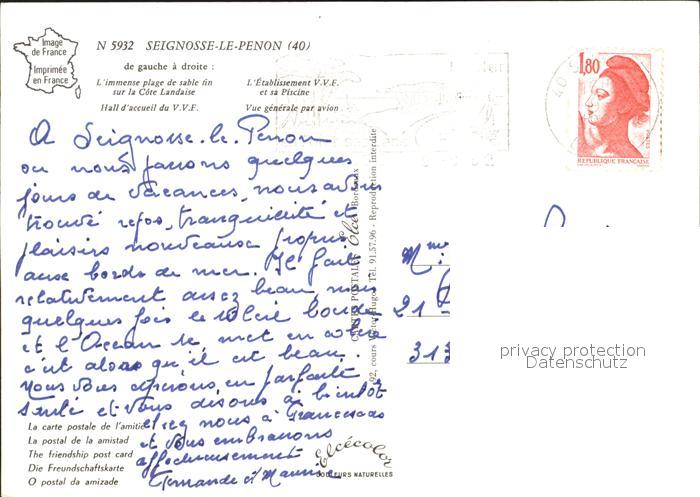 Image
de France
Imprimée
en France
N 5932 SEIGNOSSE-LE-PENON (40)
de gauche à droite :
L'immense plage de sable fin
sur la Côte Landaise
L'Établissement V.V.F.
et sa Piscine
Hall d'accueil du V.V.F.
Vue générale par avion
1,80
REPUBLIQUE FRANÇAISE
A Seignosse-le-Penon
ou nous passons quelques
jours de vacances, nous avons
trouvé repos, tranquillité et
plaisirs nouveaux propres
aux bords de mer. Il fait
relativement assez beau, mais
quelques fois le soleil boude
et l'Océan se met en colère
c'est alors qu'il est beau.
Nous vous espérons en parfaite
santé et vous disons à bientôt
chez nous à Francescas
et vous embrassons
affectueusement
Fernande et Maurice
La carte postale de l'amitié
La postal de la amistad
The friendship post card
Die Freundschaftskarte
O postal da amizade
CARTES POSTALES Elcé Bordeaux
92, cours Victor-Hugo Tél. 91.57.96 - Reproduction interdite
Elcécolor
COULEURS NATURELLES
Mme
21
313
privacy protection
Datenschutz